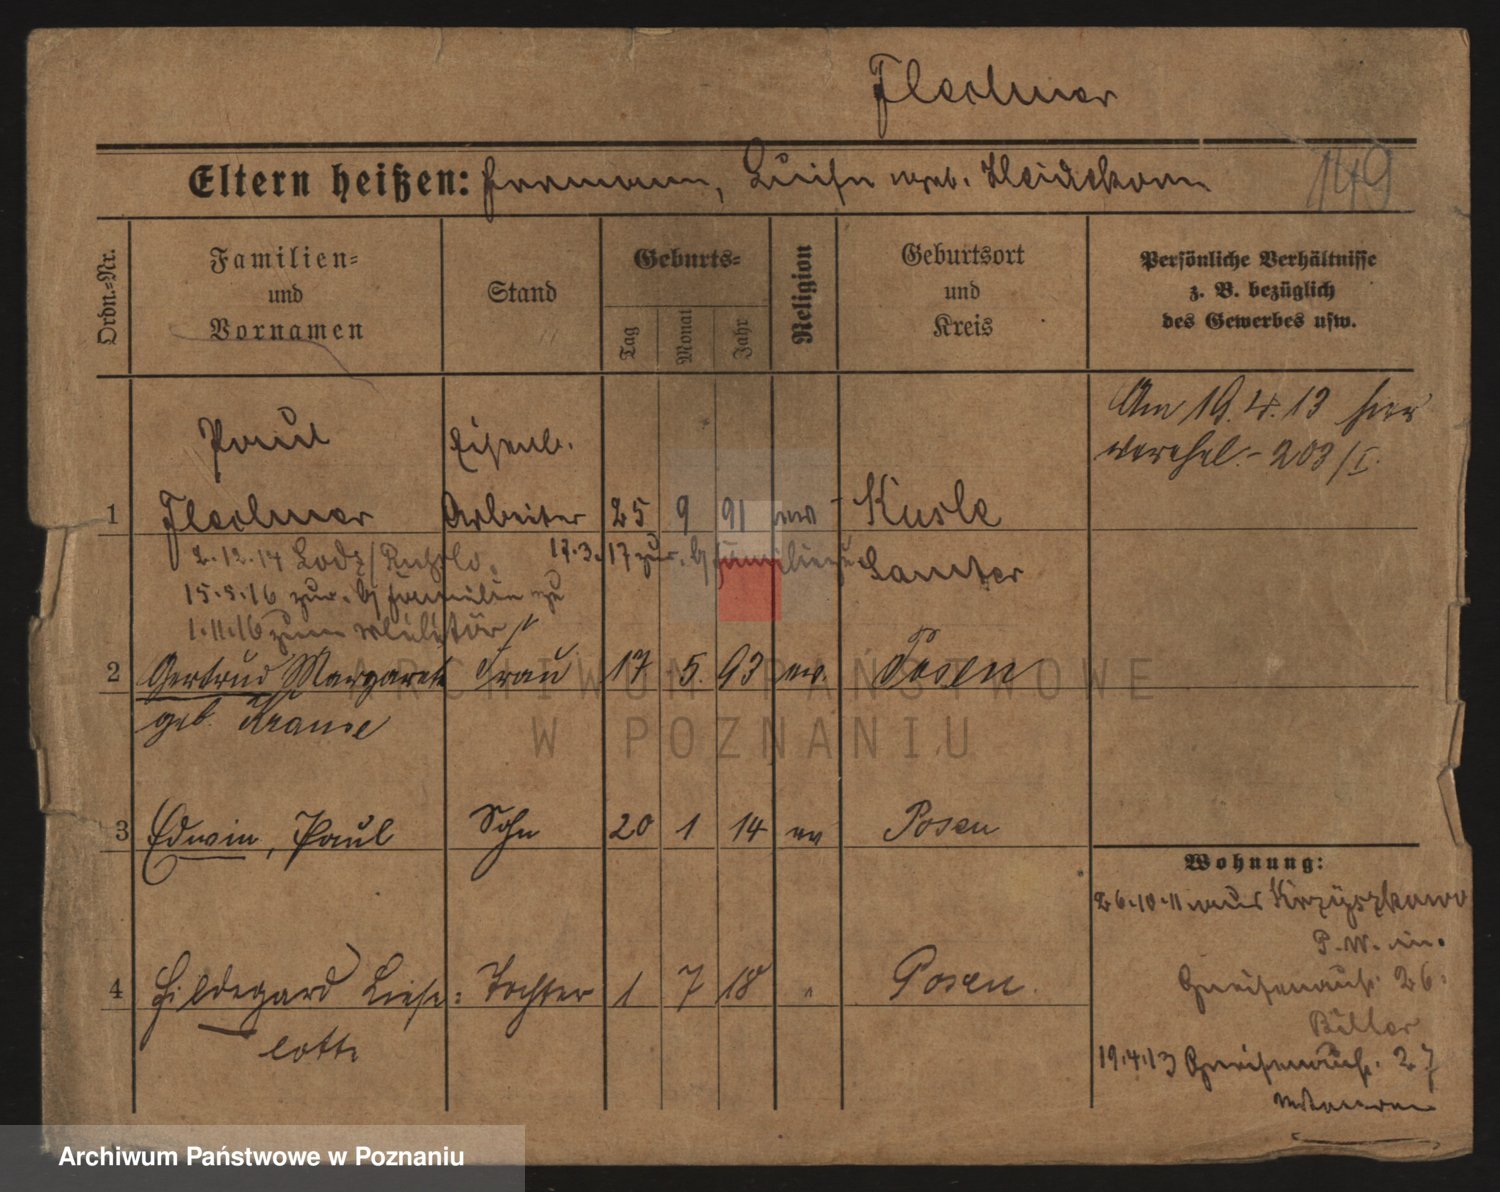 Flechner
149
Eltern heißen: Hermann, Luise geb. Heidekorn
Ordn.-Nr.
Familien- und Vornamen
Stand
Geburts-
Tag
Monat
Jahr
Religion
Geburtsort und Kreis
Persönliche Verhältnisse
z. B. bezüglich
des Gewerbes usw.
Am 19.4.13 hier
verehel. - 203/I.
Paul
Eisenb.
1 Flechner Arbeiter 25 9 91 ev Kusle
Samter
2.12.14 Lodz
17.3.17 zur. Familie zu
15.5.16 zur. Familie zu
1.11.16 zum Militär
2 Gertrud Margarete Frau 17 5. 93 ev. Posen
geb. Krause
3 Edwin, Paul Sohn 20 1 14 ev Posen
4 Hildegard Liese= Tochter 1 7 18 " Posen.
lotte
Wohnung:
26.10.11 aus Krzyszkowo
P.W. in.
Gneisenaustr. 26.
Biller
19.4.13 Gneisenaustr. 27
ARCHIWUM PAŃSTWOWE
W POZNANIU
Archiwum Państwowe w Poznaniu